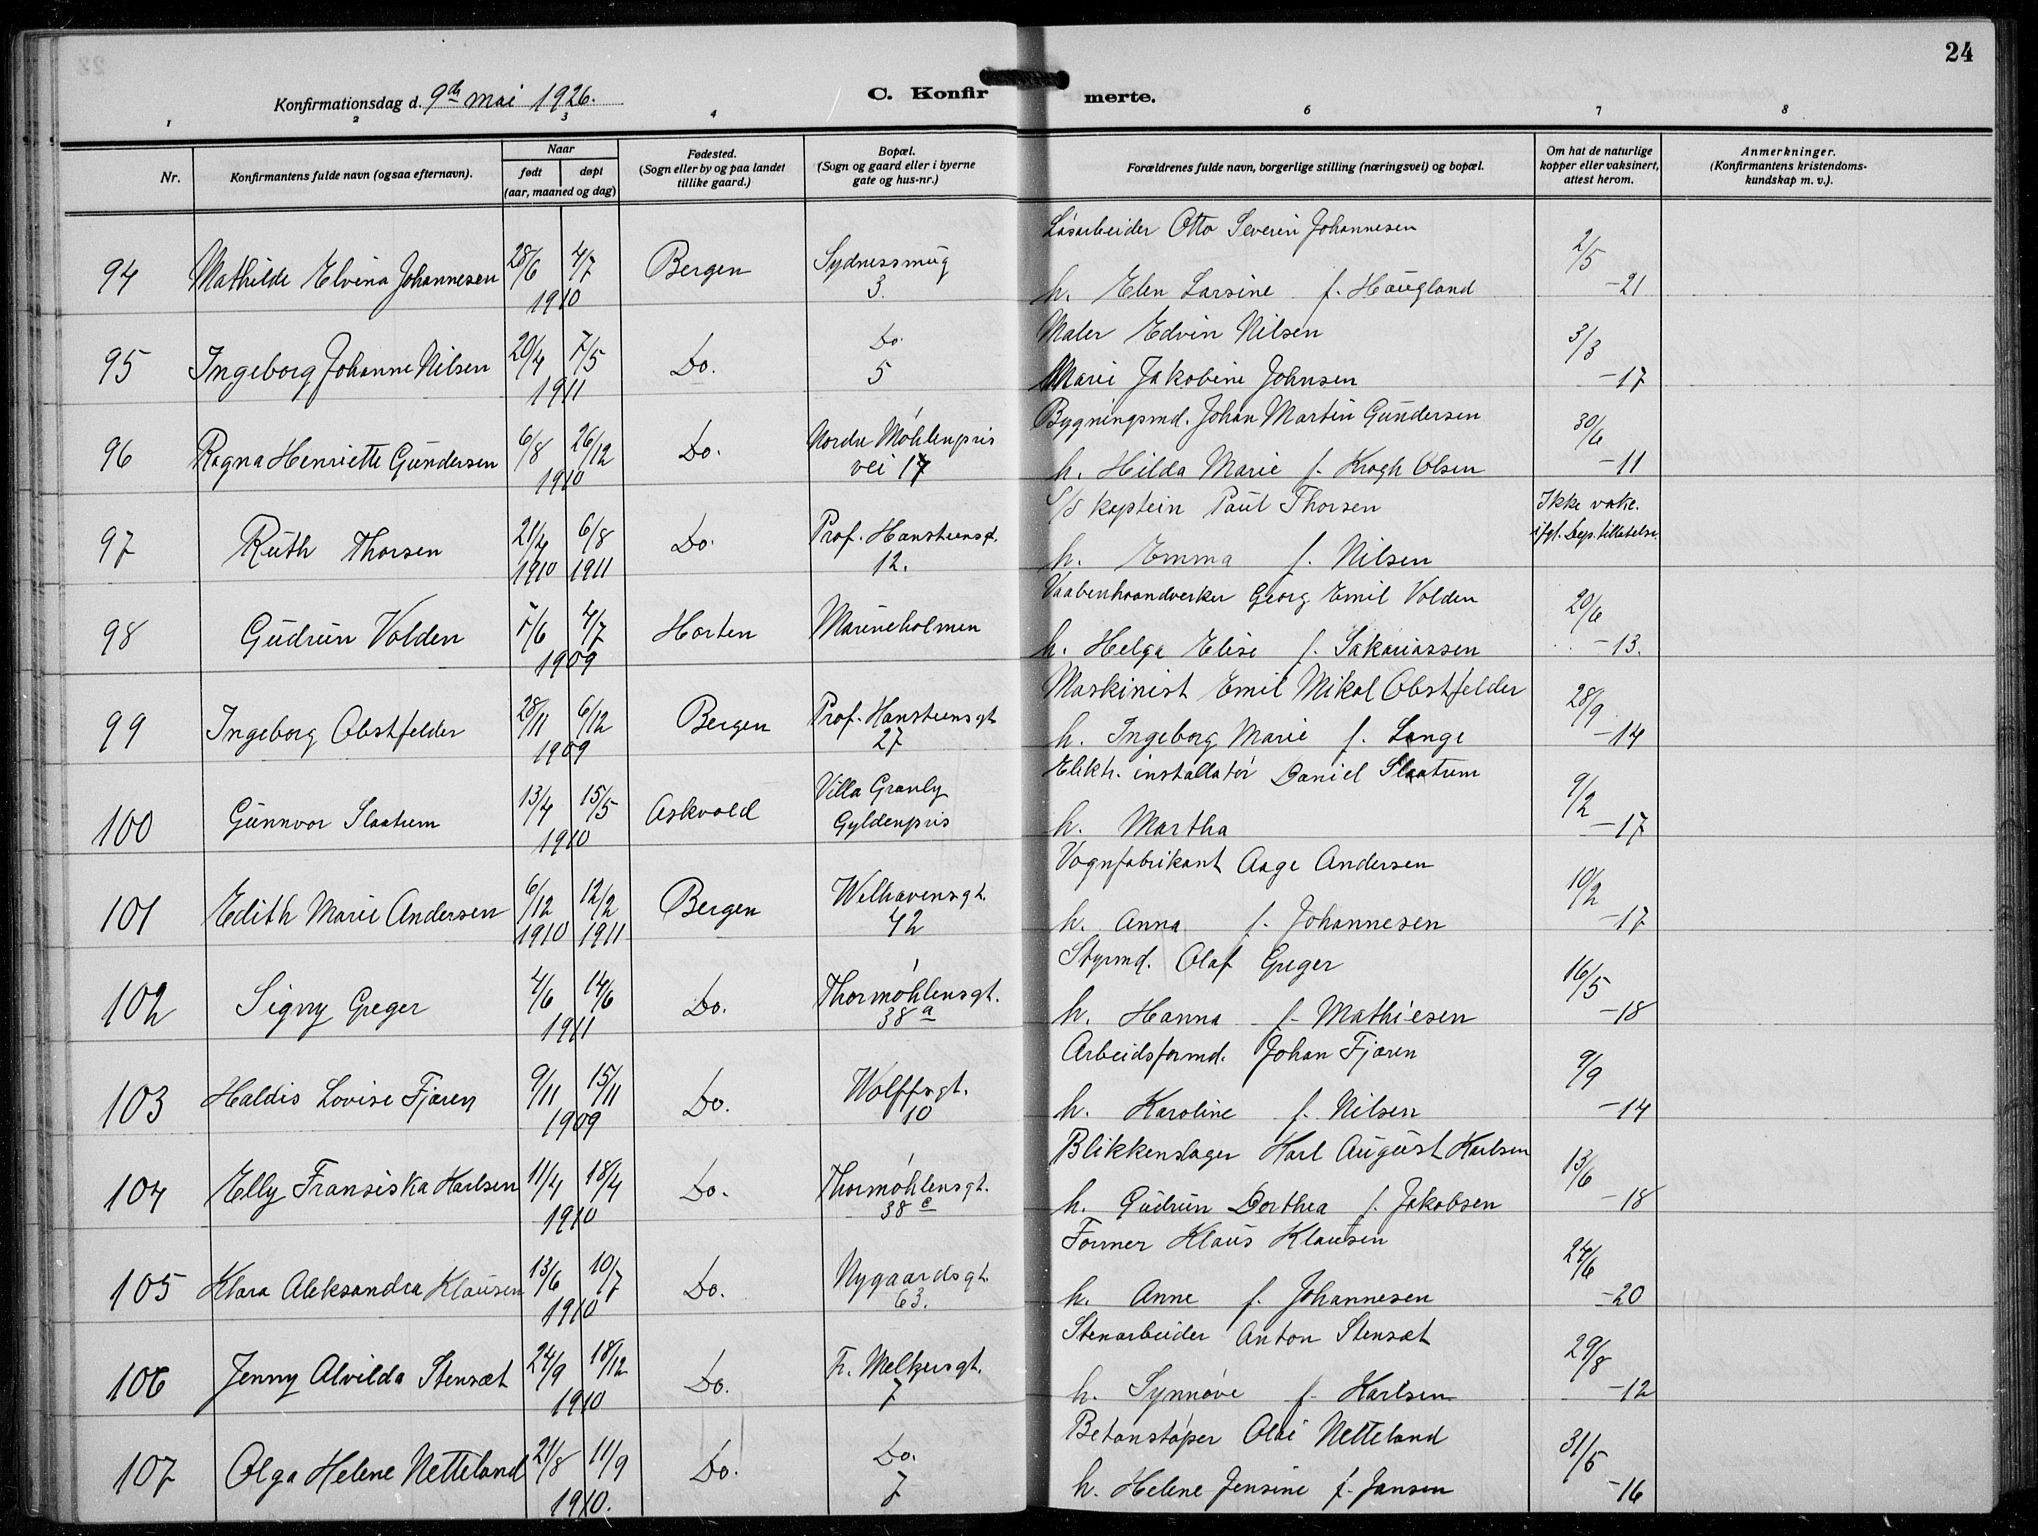 24
Konfirmationsdag d. 9de mai 1926.
C. Konfirmerte.
1 2 3 4 6 7 8
Nr.
Konfirmantens fulde navn (ogsaa efternavn).
Naar
født døpt
(aar, maaned og dag)
Fødested.
(Sogn eller by og paa landet
tillike gaard.)
Bopæl.
(Sogn og gaard eller i byerne
gate og hus-nr.)
Forældrenes fulde navn, borgerlige stilling (næringsvei) og bopæl.
Om hat de naturlige
kopper eller vaksinert,
attest herom.
Anmerkninger.
(Konfirmantens kristendoms-
kundskap m. v.).
Løsarbeider Otto Severin Johannesen
94 Mathilde Elvina Johannesen 28/6 4/7 Bergen Sydnessmug 2/5
1910 3. h. Elen Larsine f. Haugland -21
Maler Edvin Nilsen
95 Ingeborg Johanne Nilsen 20/4 7/5 Do. Do. 3/3
1911 5 Marie Jakobine Johnsen -17
Bygningsmd. Johan Martin Gundersen
96 Ragna Henriette Gundersen 6/8 26/12 Do. Nordre Møhlenpris 30/6
1910 vei 17 h. Hilda Marie f. Krogh Olsen -11
S/S kaptein Paul Thorsen Ikke vakc.
97 Ruth Thorsen 21/4 6/8 Do. Prof. Hansteensgt. ifgl. Dep. tillatelse.
1910 1911 12. h. Emma f. Nilsen
Vaabenhaandverker Georg Emil Volden
98 Gudrun Volden 7/6 4/7 Horten Marineholmen 20/6
1909 h. Helga Elise f. Sakariassen -13.
Maskinist Emil Nikol Obstfelder
99 Ingeborg Obstfelder 28/11 6/12 Bergen Prof. Hansteensgt 28/9
1909 27 h. Ingeborg Marie f. Lange -14
Elektr. installatør Daniel Slaatrem
100 Gunnvor Slaatrem 13/4 15/5 Askvold Villa Granly 9/2
1910 Gyldenpris h. Martha -17
Vognfabrikant Aage Andersen
101 Edith Marie Andersen 6/12 12/2 Bergen Welhavensgt. 10/2
1910 1911 42 h. Anna f. Johannesen -17
Styrmd. Olaf Greger
102 Signy Greger 4/6 14/6 Do. Thormøhlensgt. 16/5
1911 38 a h. Hanna f. Mathiesen -18
Arbeidsformd. Johan Fjæren
103 Haldis Lovise Fjæren 9/11 15/11 Do. Wolffsgt. 9/9
1909 10 h. Karoline f. Nilsen -14
Blikkenslager Karl August Karlsen
104 Elly Fransiska Karlsen 11/4 18/4 Do. Thormøhlensgt. 13/6
1910 38 c h. Gudrun Dorthea f. Jakobsen -18
Former Klaus Klausen
105 Klara Aleksandra Klausen 13/6 10/7 Do. Nygaardsgt. 24/6
1910 63. h. Anne f. Johannesen -20
Stenarbeider Anton Stensæt
106 Jenny Alvilda Stensæt 24/9 18/12 Do. Fr. Meltzersgt. 29/8
1910 7 h. Synnøve f. Karlsen -12
Betonstøper Olai Netteland
107 Olga Helene Netteland 21/8 11/9 Do. Do. 31/5
1910. 7 h. Helene Jensine f. Jansen -16